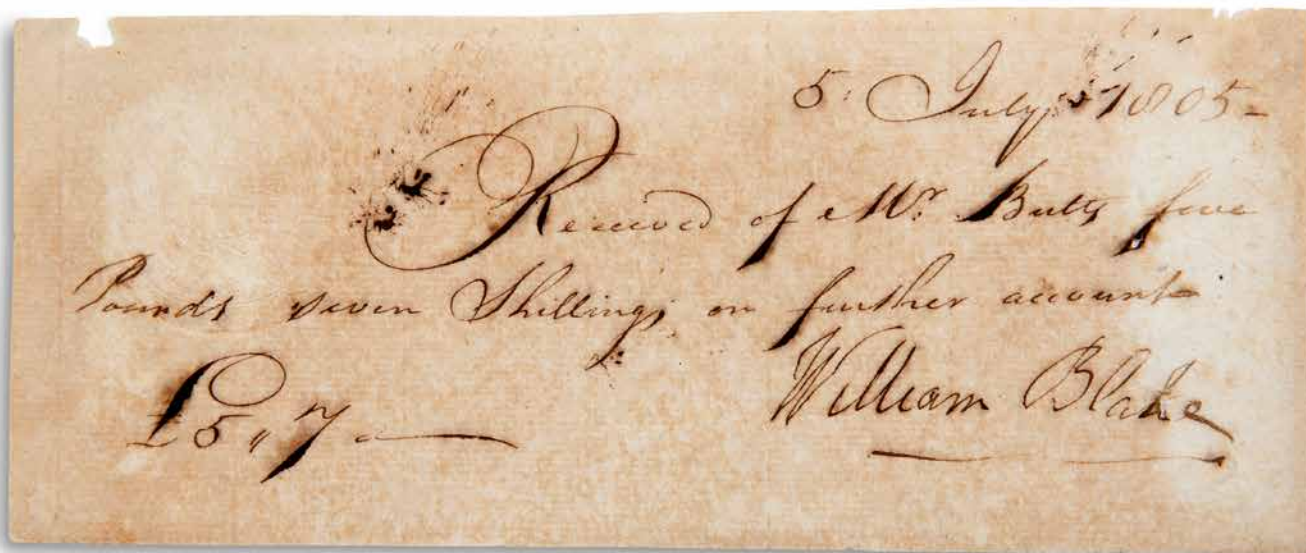 5. July 1805-
Received of Mr. Butts five
Pounds seven Shillings on further account
£5 " 7 "
William Blake